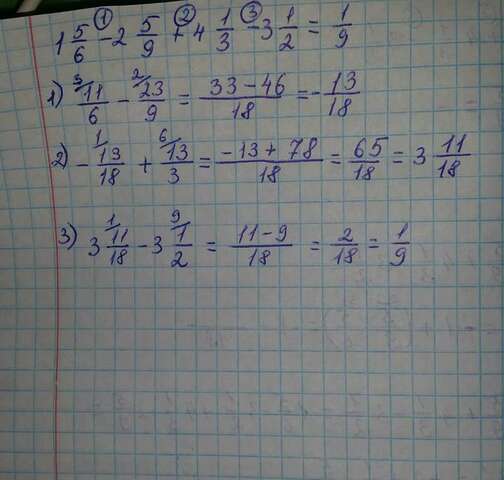 1 5/6 - 2 5/9 + 4 1/3 - 3 1/2 = 1/9
① ② ③
1) 3/ 11/6 - 2/ 23/9 = (33-46)/18 = -13/18
2) - 1/ 13/18 + 6/ 13/3 = (-13+78)/18 = 65/18 = 3 11/18
3) 3 1/ 11/18 - 3 9/ 1/2 = (11-9)/18 = 2/18 = 1/9